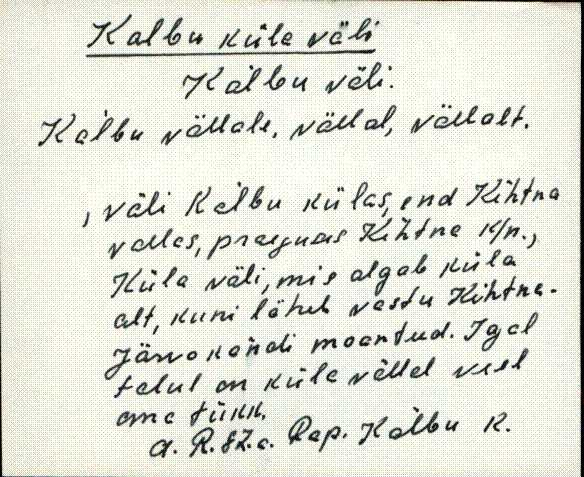 Kalbu küla väli
Kalbu väli.
Kalbu vällale, vällal, vällalt.
, väli Kalbu külas, end Kihtna
vallas, praegus Kihtna k/n.,
Küla väli, mis algab küla
alt, kuni läheb vastu Kihtna-
Järvakandi maantud. Igal
talul on küla vällal veel
oma tükk.
a. R. Rap. Kalbu k.